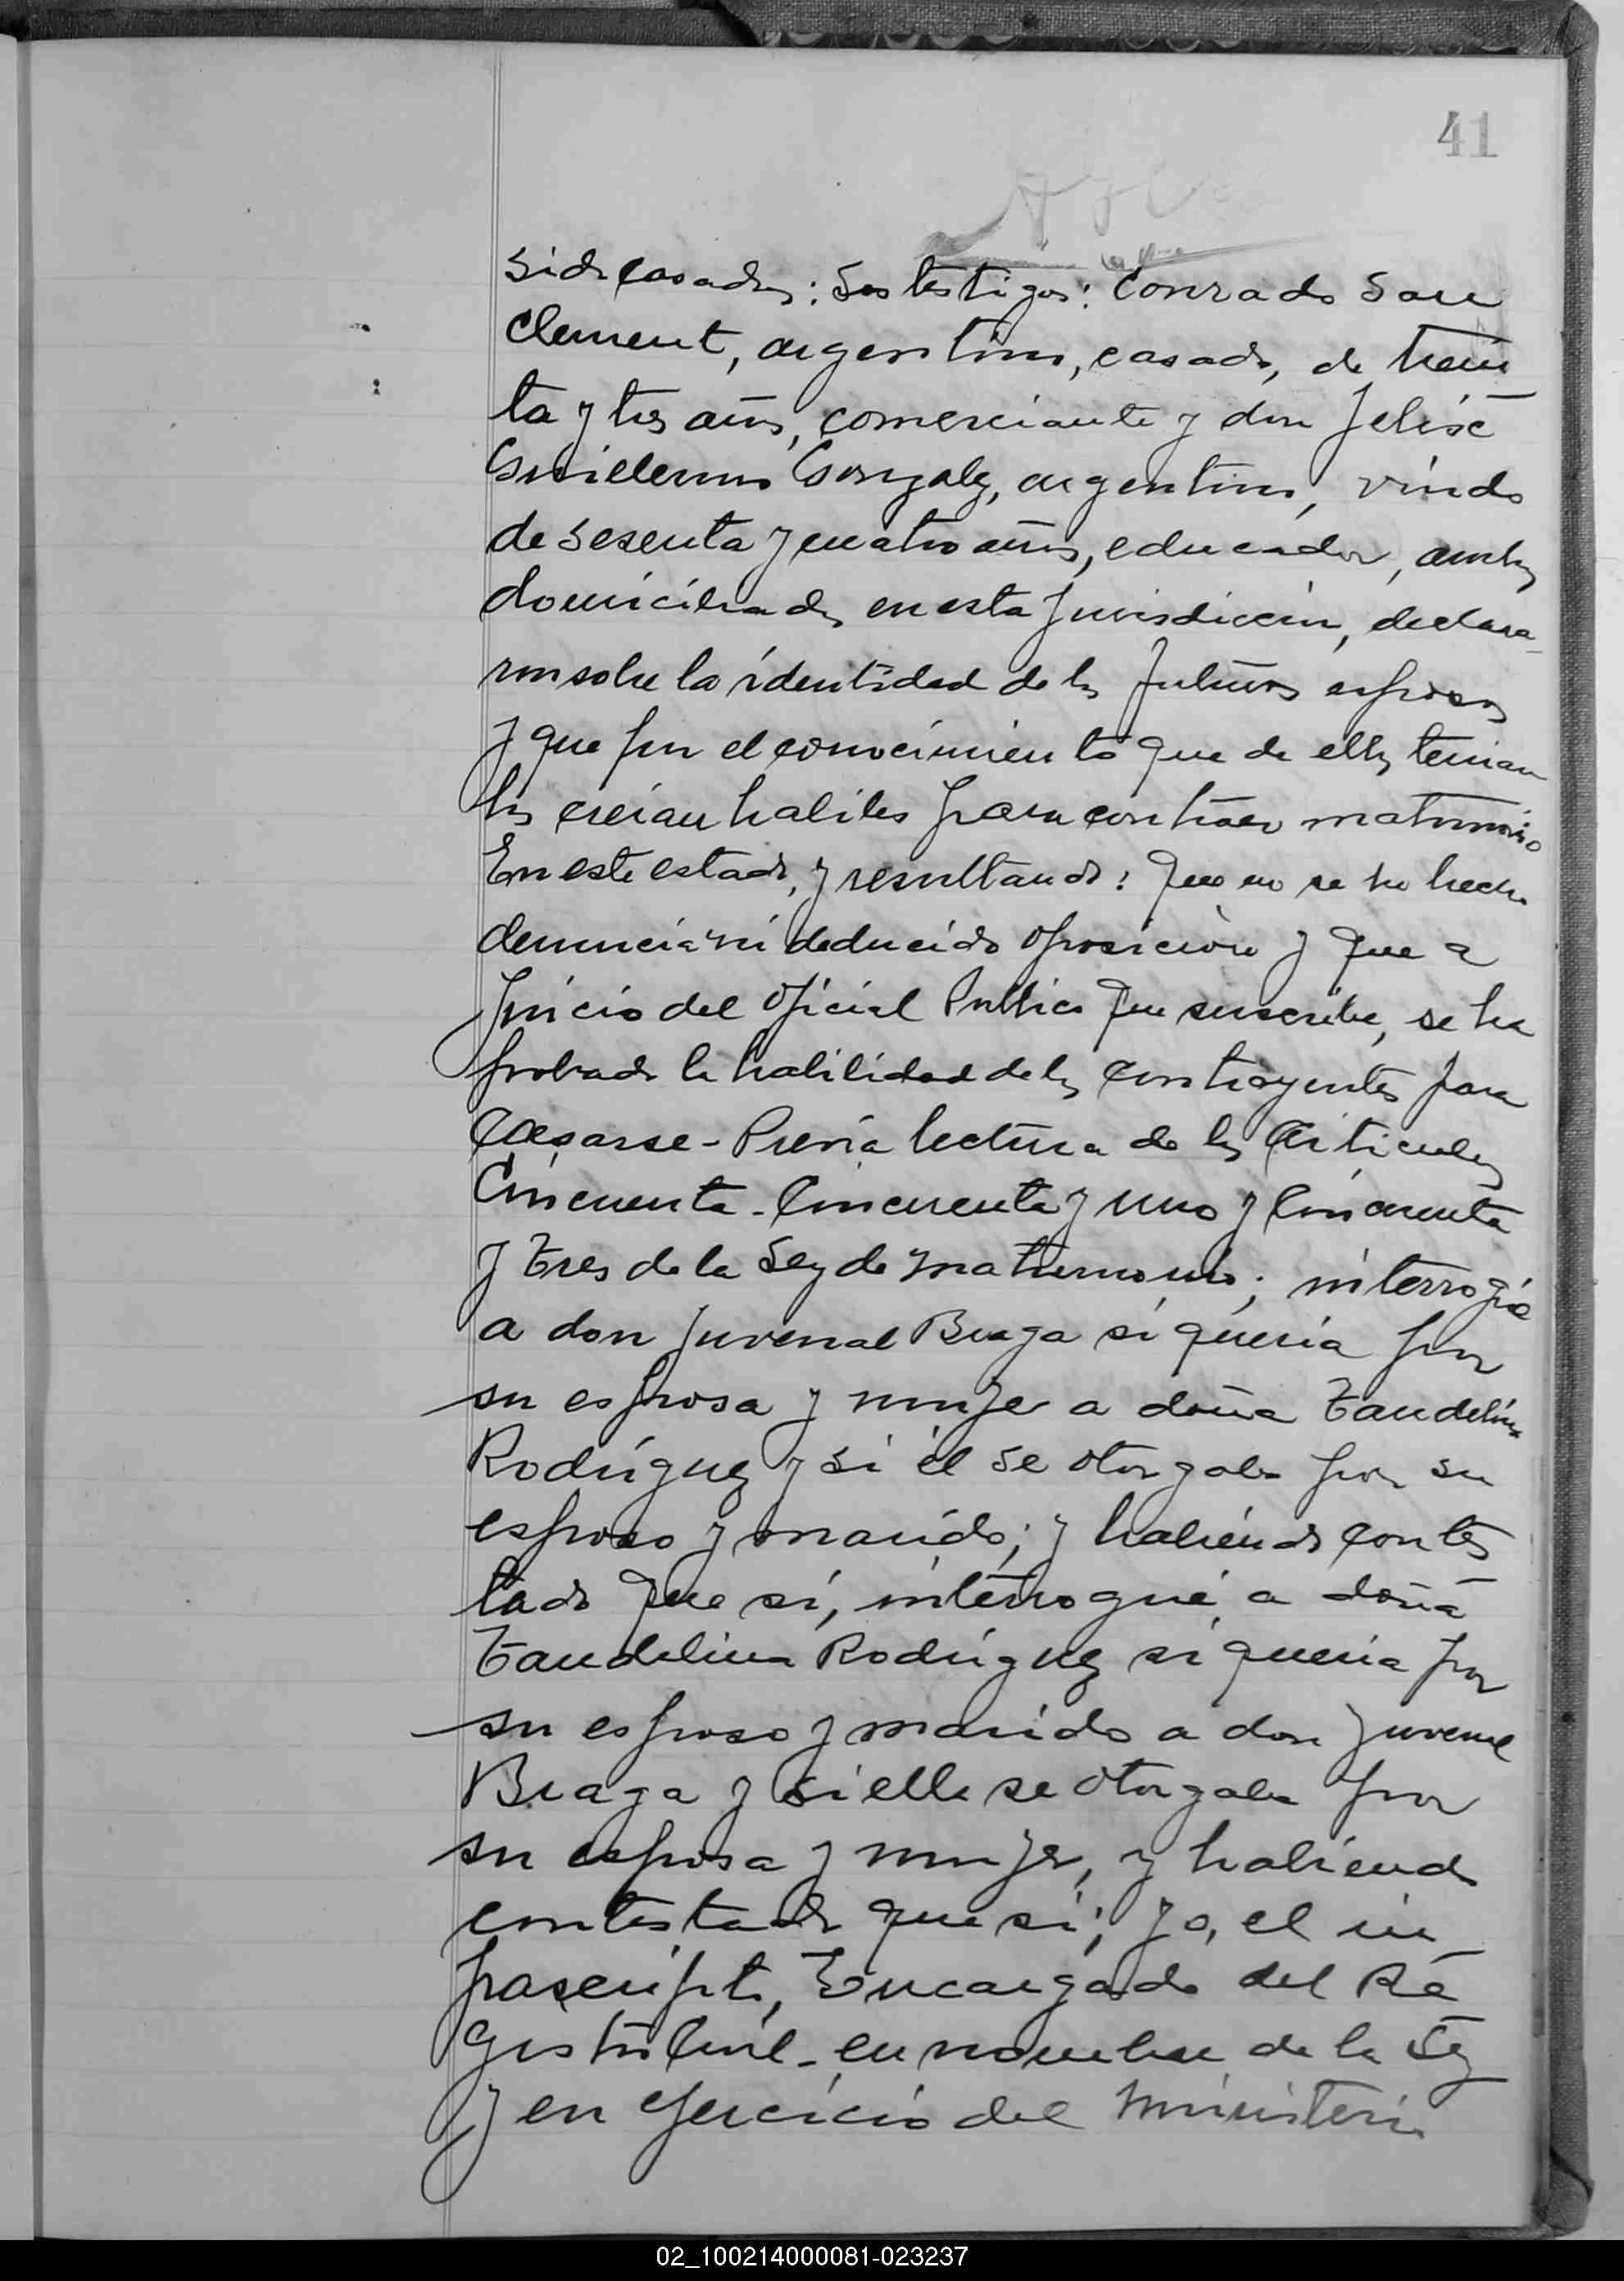 41
sido casados; Los testigos: Conrado San
Clement, argentino, casado, de trein
ta y tres años, comerciante y don Felisé
Guillermo Gonzalez, argentino, viudo
de sesenta y cuatro años, educador, ambos
domiciliados en esta Jurisdicción, declara-
ron sobre la identidad de los futuros esposos
y que por el conocimiento que de ellos tenian
los creian habiles para contraer matrimonio
En este estado, y resultando: Que no se ha hecho
denuncia ni deducido oposición y que a
Juicio del Oficial Publico que suscribe, se ha
probado la habilidad de los contrayentes para
casarse - Previa lectura de los Articulos
Cincuenta - Cincuenta y uno y Cincuenta
y Tres de la Ley de matrimonio; interrogué
a don Juvenal Braga si queria por
su esposa y mujer a doña Taudelina
Rodríguez y si él se otorgaba por su
esposo y marido; y habiendo contes
tado que sí, interrogué a doña
Taudelina Rodríguez si queria por
su esposo y marido a don Juvenal
Braga y si ella se otorgaba por
su esposa y mujer, y habiendo
contestado que sí; Yo, el in
frascripto, Encargado del Re
gistro Civil - en nombre de la Ley
y en ejercicio del ministerio
02_100214000081-023237